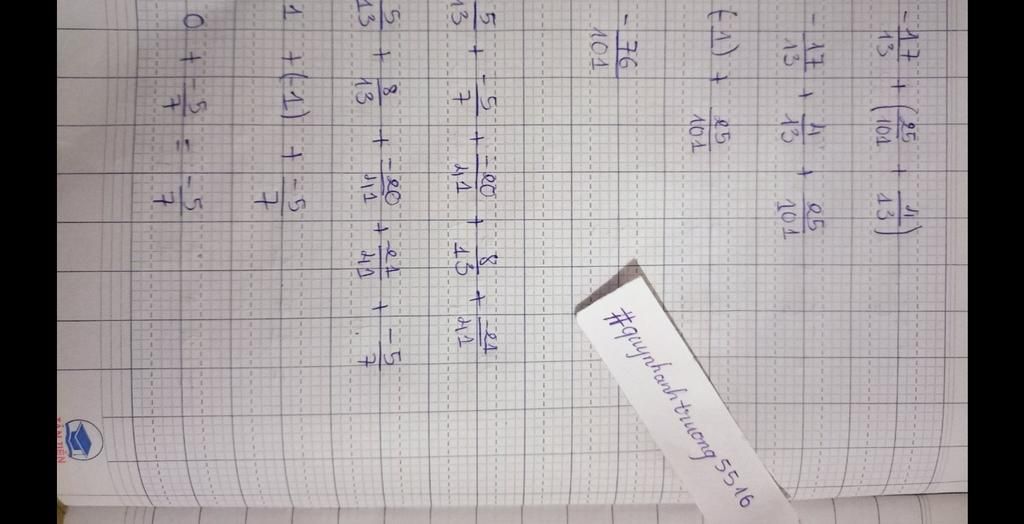 -17/13 + (25/101 + 4/13)
-17/13 + 4/13 + 25/101
(-1) + 25/101
-76/101
5/13 + -5/7 + -20/41 + 8/13 + -21/41
5/13 + 8/13 + -20/41 + -21/41 + -5/7
1 + (-1) + -5/7
0 + -5/7 = -5/7
#quynhanhtruong5516